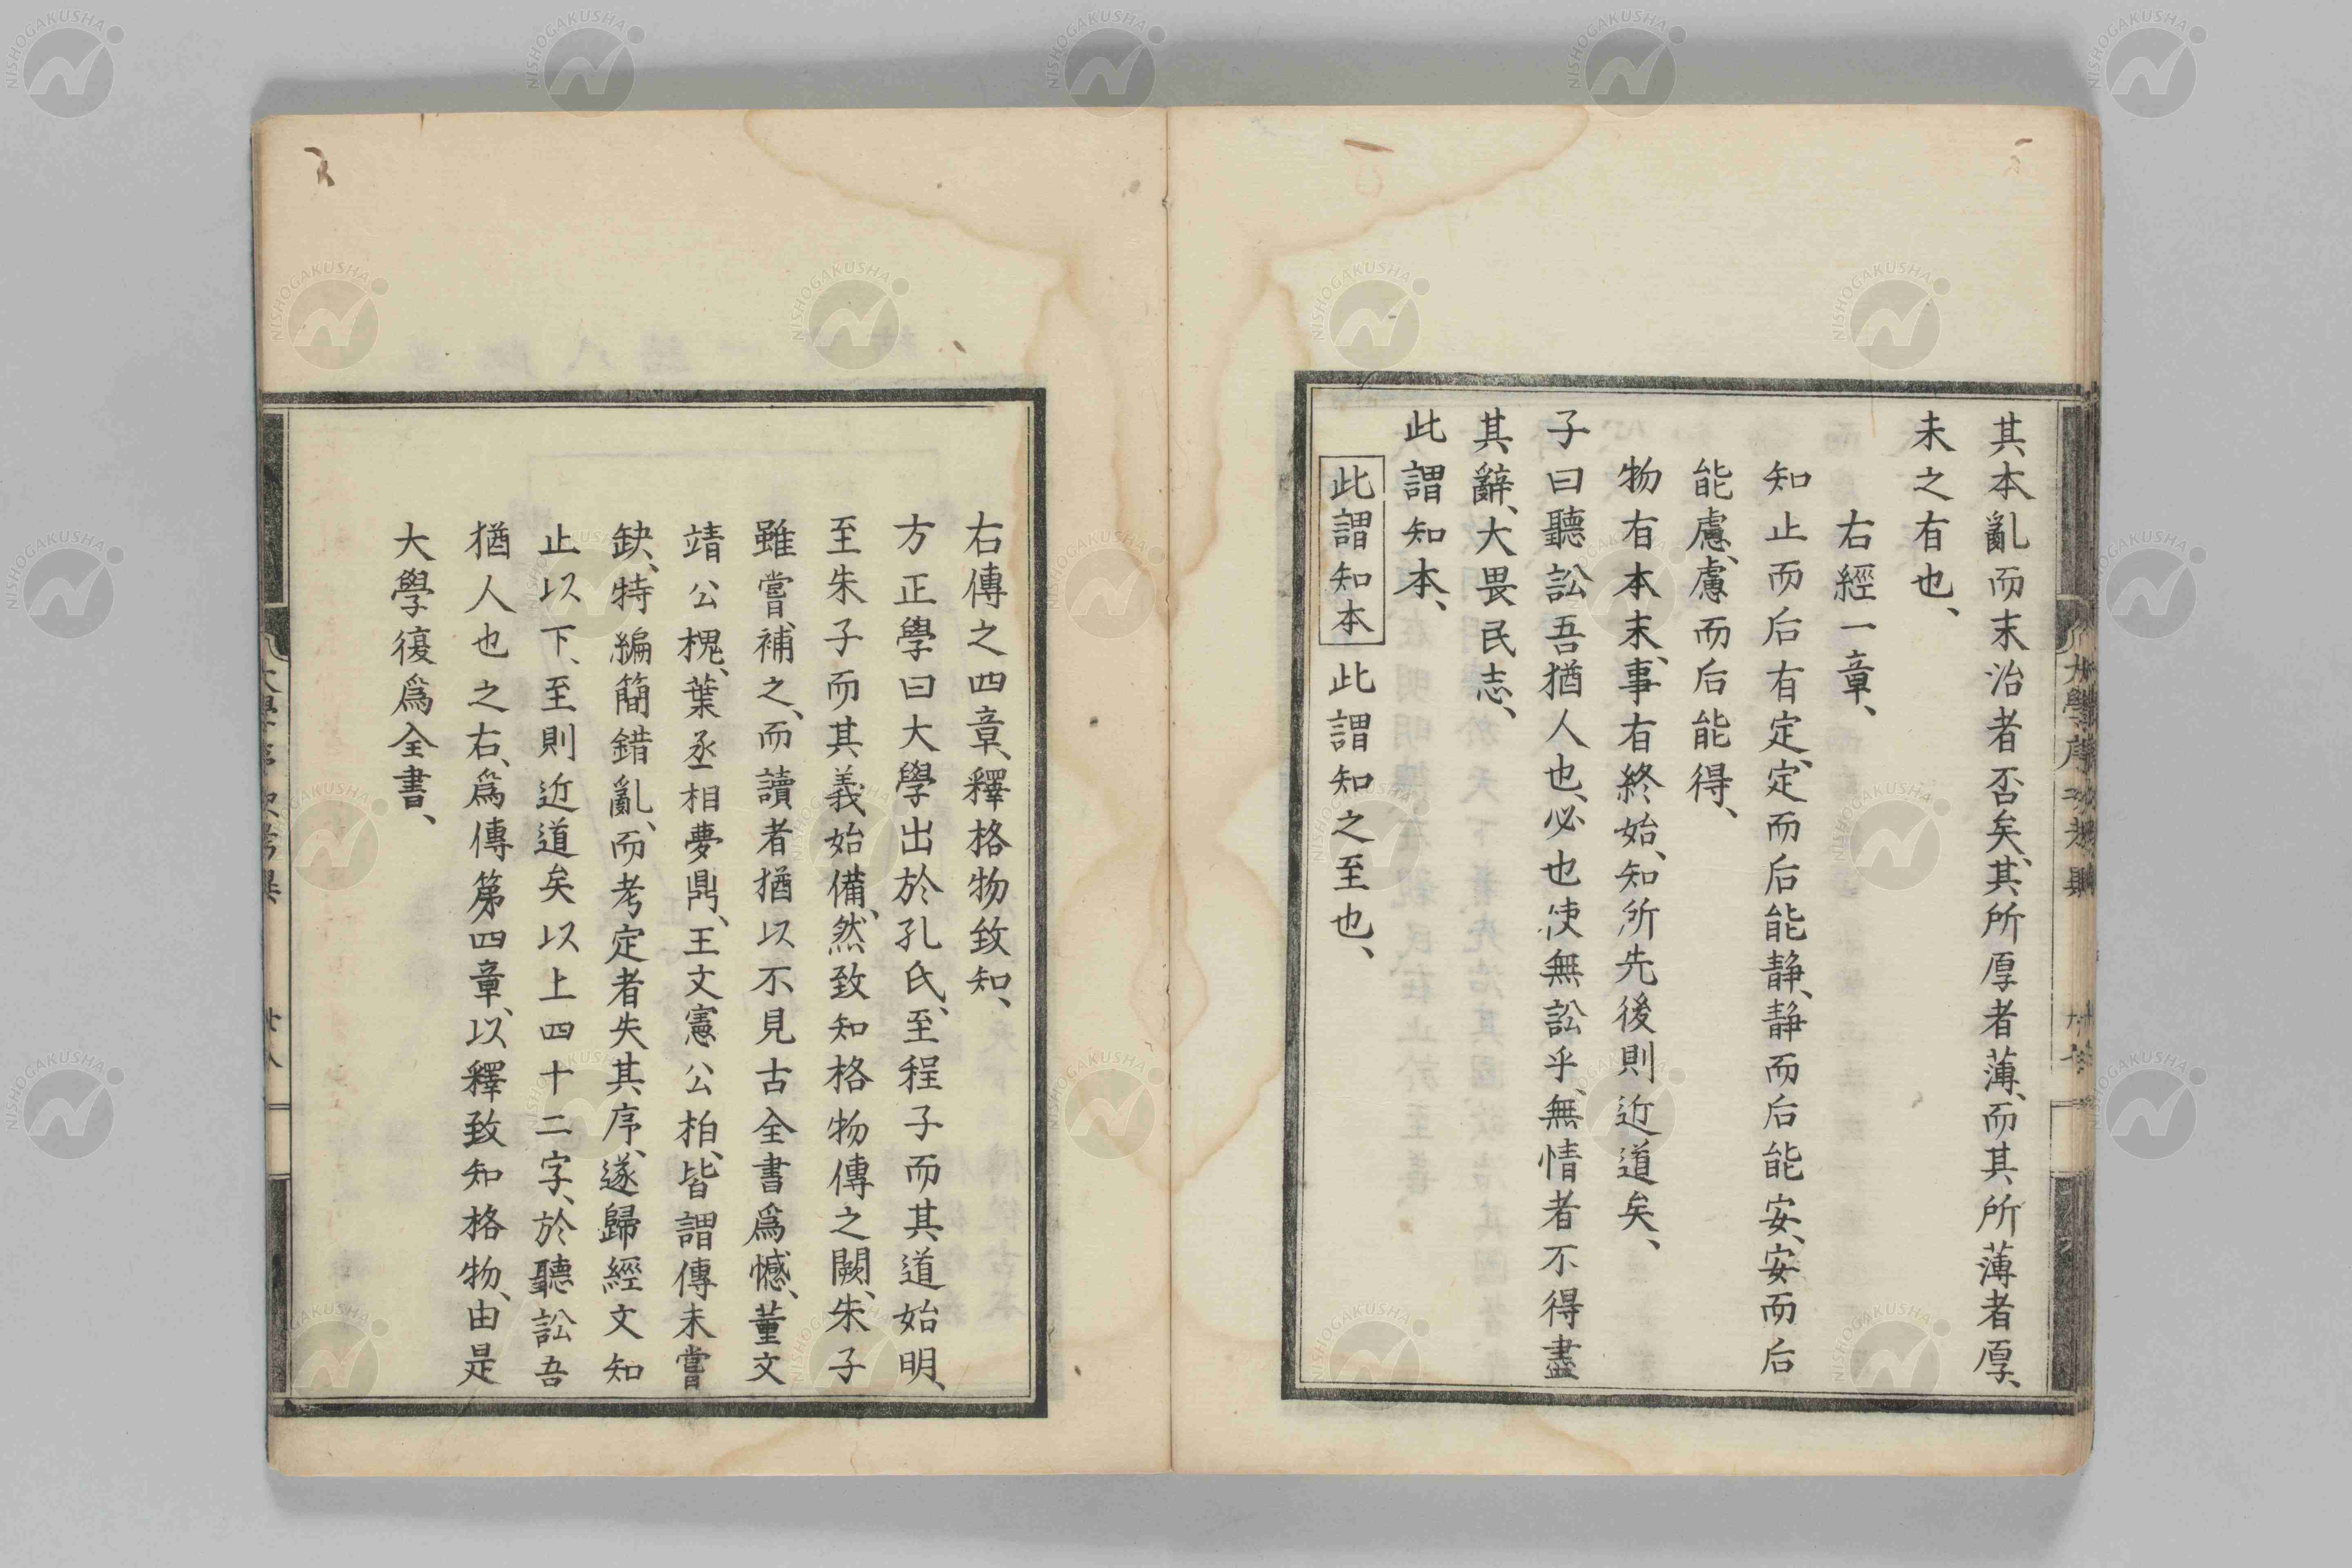 其本亂而末治者否矣、其所厚者薄、而其所薄者厚、
未之有也、
右經一章、
知止而后有定、定而后能靜、靜而后能安、安而后
能慮、慮而后能得、
物有本末、事有終始、知所先後則近道矣、
子曰聽訟吾猶人也、必也使無訟乎、無情者不得盡
其辭、大畏民志、
此謂知本、
此謂知本 此謂知之至也、
右傳之四章、釋格物致知、
方正學曰大學出於孔氏、至程子而其道始明、
至朱子而其義始備、然致知格物傳之闕、朱子
雖嘗補之、而讀者猶以不見古全書爲憾、董文
靖公槐、葉丞相夢鼎、王文憲公柏、皆謂傳未嘗
缺、特編簡錯亂、而考定者失其序、遂歸經文知
止以下、至則近道矣以上四十二字、於聽訟吾
猶人也之右、爲傳第四章、以釋致知格物、由是
大學復爲全書、
NISHOGAKUSHA